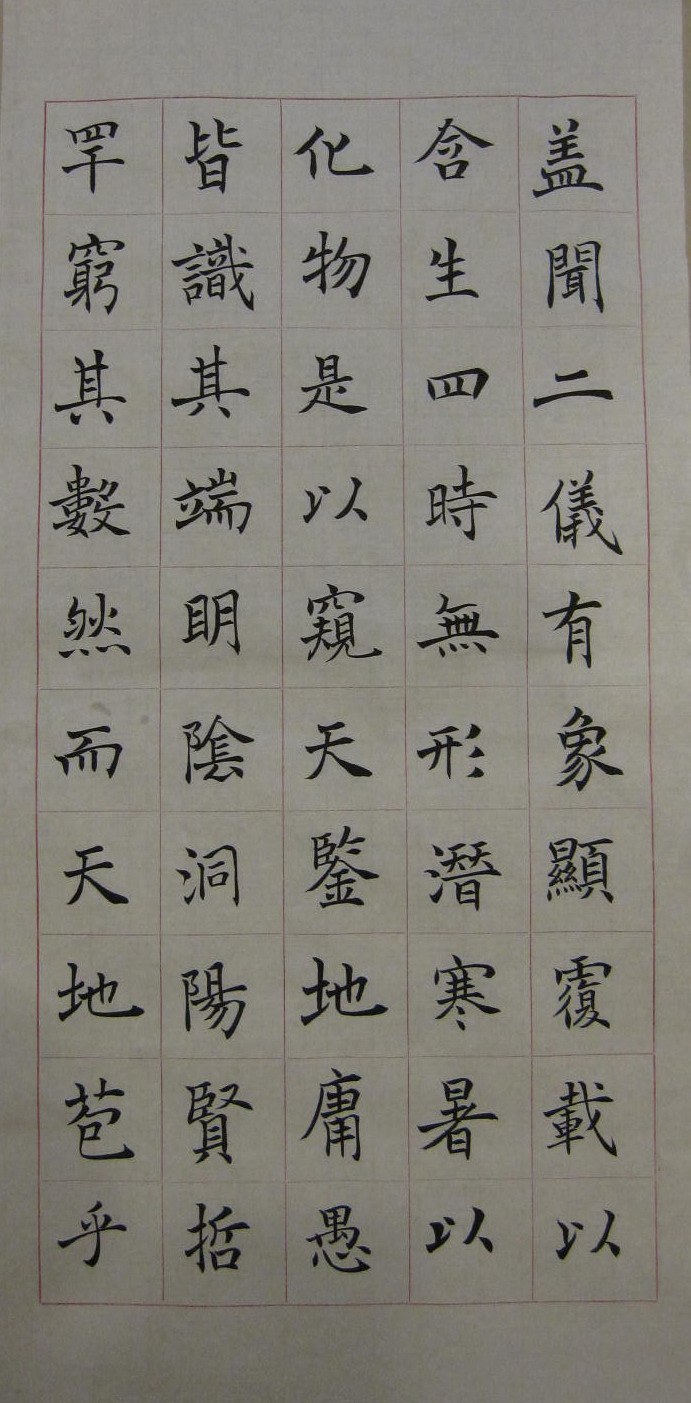 盖聞二儀有象顯覆載以
含生四時無形潛寒暑以
化物是以窺天鑒地庸愚
皆識其端明陰洞陽賢哲
罕窮其數然而天地苞乎